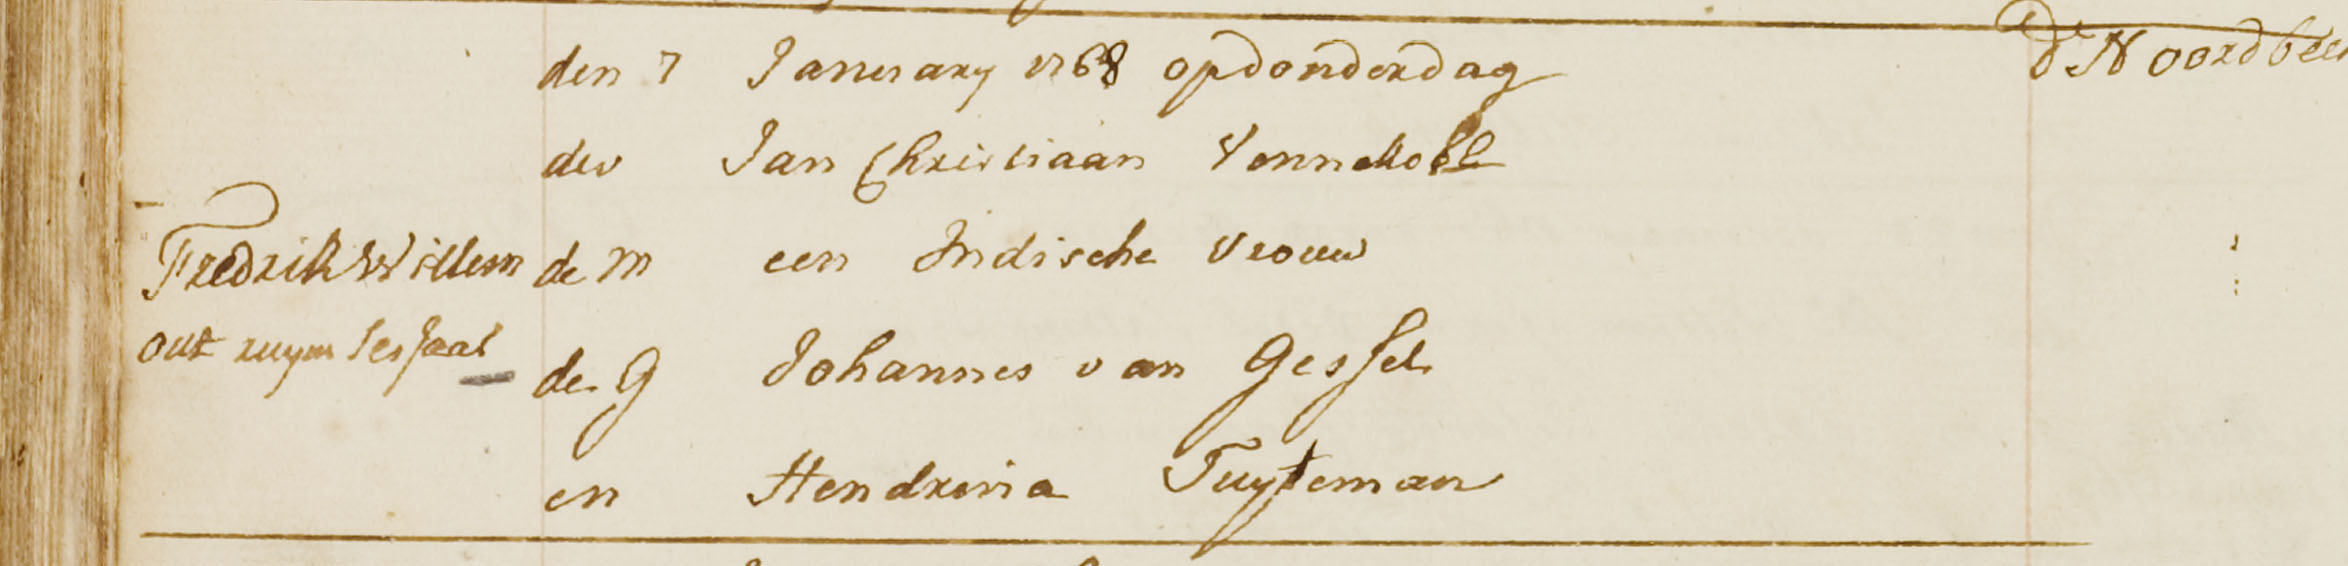 den 7 January 1768 op donderdag
D: Noordbeek
de v Jan Christiaan Vonnekohl
Fredrik Willem
de m een Indische vrouw
out ruym ses jaar
de G Johannes van Gessel
en Hendrina Tuyteman